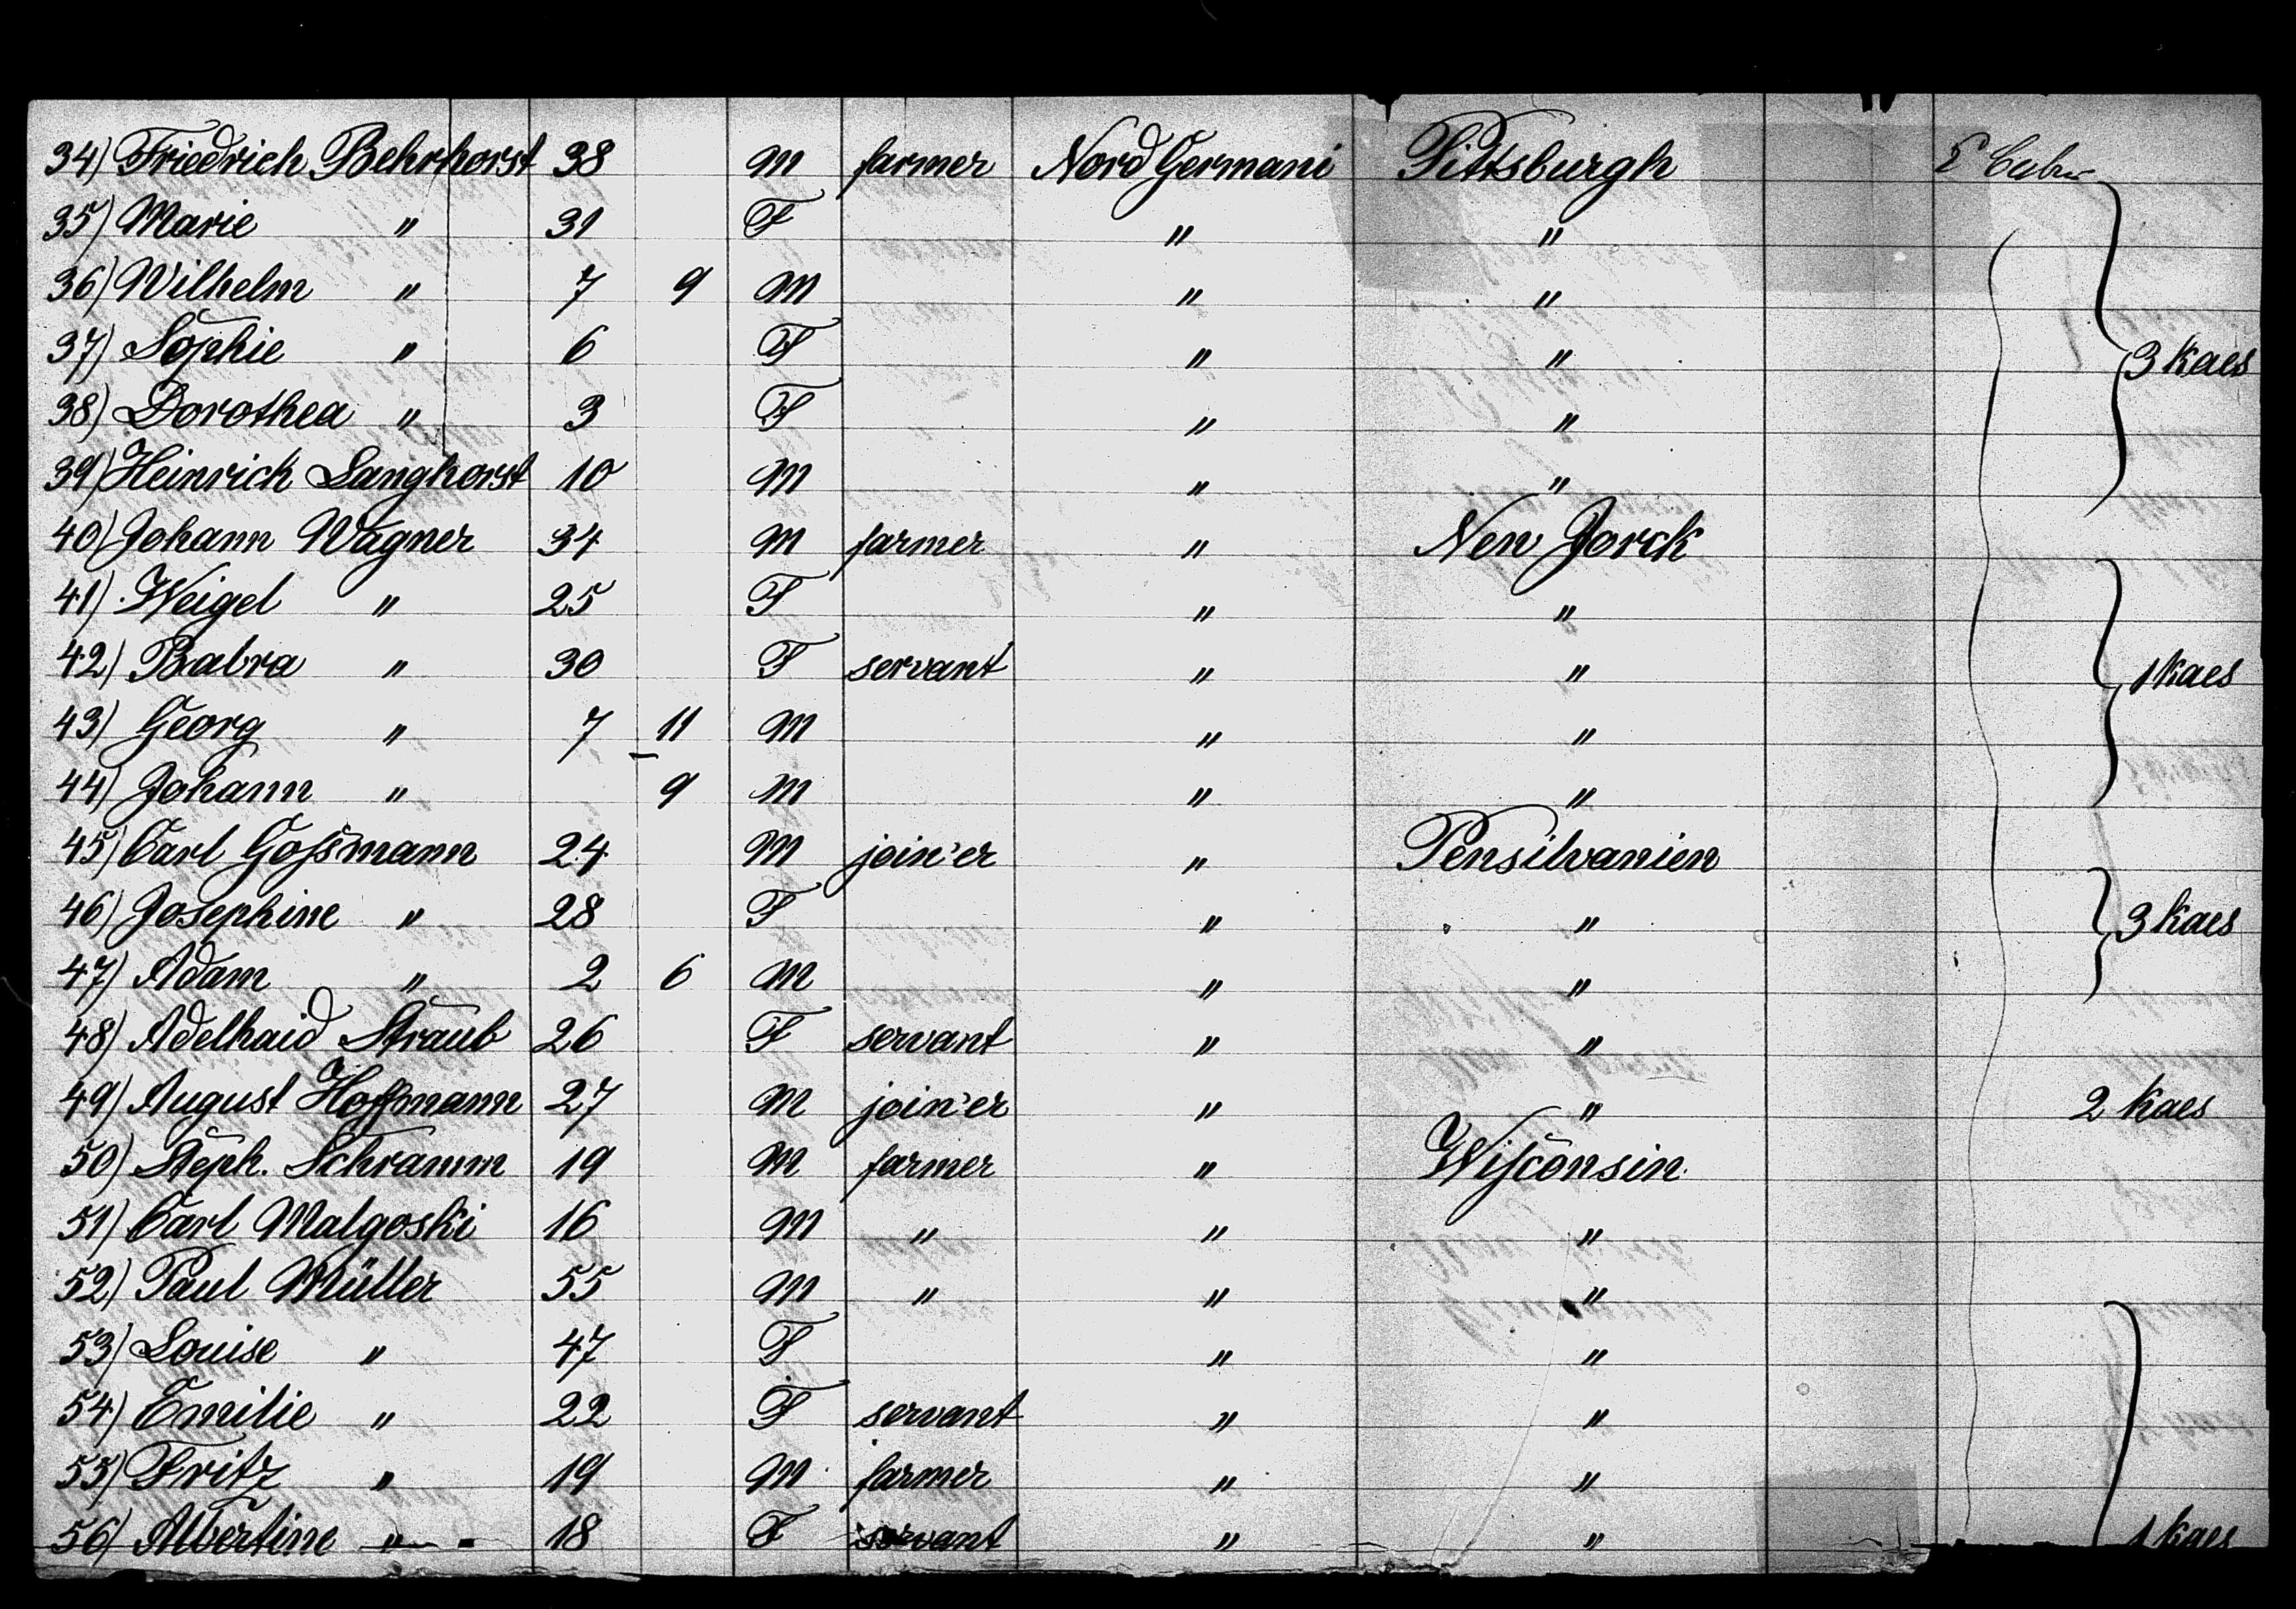 34) Friedrich Behrhorst 38 M farmer Nord Germani Pittsburgh
35) Marie " 31 F " "
36) Wilhelm " 7 9 M " "
37) Sophie " 6 F " " 3 Kaes
38) Dorothea " 3 F " "
39) Heinrich Langhorst 10 M " "
40) Johann Wagner 34 M farmer " New Jorck
41) Weigel " 25 F " "
42) Babra " 30 F servant " " 1 Kaes
43) Georg " 7 11 M " "
44) Johann " 9 M " "
45) Carl Goßmann 24 M join'er " Pensilvanien
46) Josephine " 28 F " " 3 Kaes
47) Adam " 2 6 M " "
48) Adelhaid Straub 26 F servant " "
49) August Hoffmann 27 M join'er " " 2 Kaes
50) Steph. Schramm 19 M farmer " Wisconsin
51) Carl Malgoski 16 M " " "
52) Paul Müller 55 M " " "
53) Louise " 47 F " "
54) Emilie " 22 F servant " "
55) Fritz " 19 M farmer " "
56) Albertine " 18 F servant " " 1 Kaes